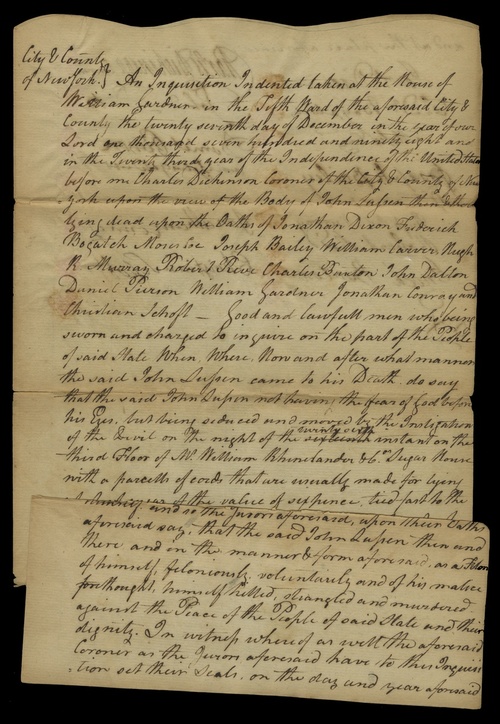 City & County
of New York. } An Inquisition Indented taken at the House of
William Gardner in the Fifth Ward of the aforesaid City &
County the twenty seventh day of December in the year of our
Lord one thousand seven hundred and ninety eight and
in the Twenty third year of the Independence of the United States
before me Charles Dickinson Coroner of the City & County of New
York upon the view of the Body of John Lupsen then & there
lying dead upon the Oaths of Jonathan Dixon Frederick
Joseph Bailey William Carver Hugh
R Murray Robert Reve Charles Buxton John Dalton
Daniel Pierson William Gardner Jonathan Conray and
Christian Schoft — Good and lawfull men who being
sworn and charged to inquire on the part of the People
of said State When, Where, How and after what manner
the said John Lupsen came to his Death do say
that the said John Lupsen not having the fear of God before
his Eyes, but being seduced and moved by the Instigation
twenty sixth
of the Devil on the night of the instant on the
third Floor of Mr. William Rhinelander & Co's Sugar House
with a parcell of cords that are usually made for tying
of the value of sixpence, tied fast to the
and so the Jurors aforesaid, upon their Oaths
aforesaid say, that the said John Lupsen then and
there and in the manner & form aforesaid, as a Felon
of himself, feloniously, voluntarily and of his malice
forthought, himself killed, strangled and murdered
against the Peace of the People of said State and their
dignity. In witness whereof as well the aforesaid
Coroner as the Jurors aforesaid have to this Inquisi
-tion set their Seals, on the day and year aforesaid